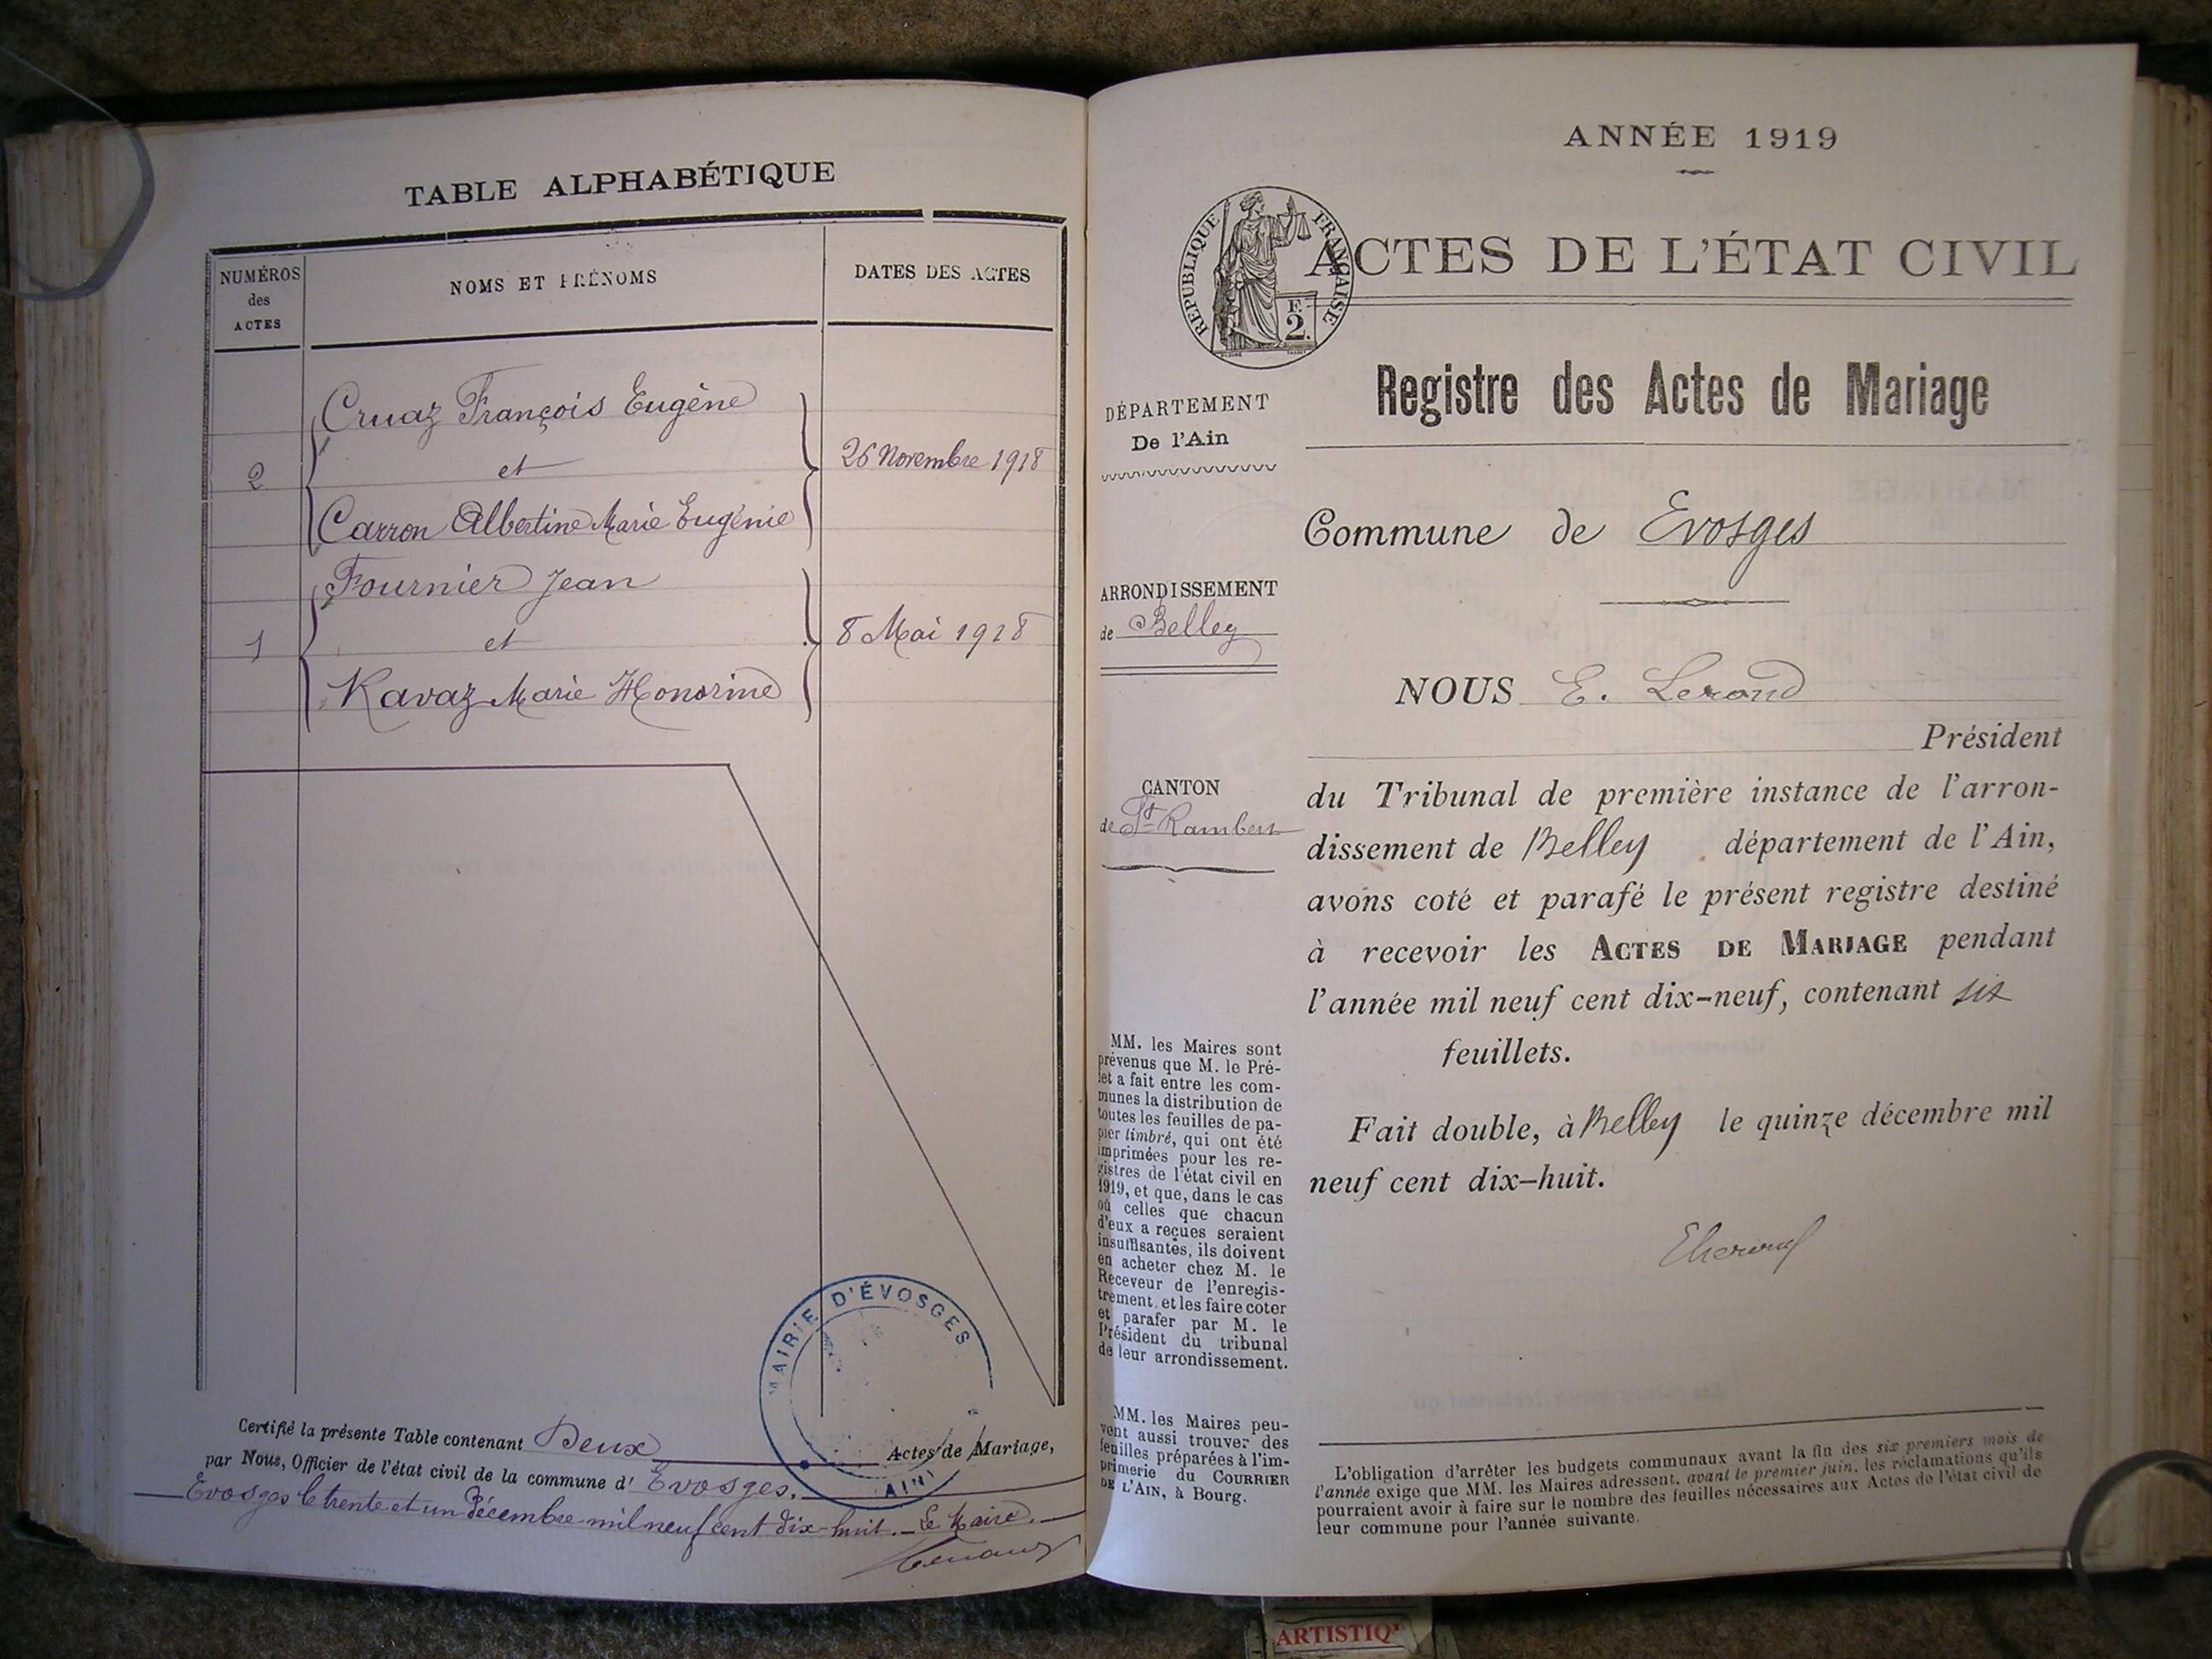 TABLE ALPHABÉTIQUE
NUMÉROS
des
ACTES
NOMS ET PRÉNOMS
DATES DES ACTES
Cruaz François Eugène
2 et 26 Novembre 1918
Carron Albertine Marie Eugénie
Fournier Jean
1 et 8 Mai 1918
Ravaz Marie Honorine
Certifié la présente Table contenant Deux Actes de Mariage,
par Nous, Officier de l'état civil de la commune d' Evosges.
Evosges le trente et un Décembre mil neuf cent dix-huit. — Le Maire.
MAIRIE D'ÉVOSGES
AIN
ANNÉE 1919
RÉPUBLIQUE FRANÇAISE
F.
2.
ACTES DE L'ÉTAT CIVIL
Registre des Actes de Mariage
DÉPARTEMENT
De l'Ain
ARRONDISSEMENT
de Belley
CANTON
de St Rambert
MM. les Maires sont
prévenus que M. le Pré-
fet a fait entre les com-
munes la distribution de
toutes les feuilles de pa-
pier timbré, qui ont été
imprimées pour les re-
gistres de l'état civil en
1919, et que, dans le cas
où celles que chacun
d'eux a reçues seraient
insuffisantes, ils doivent
en acheter chez M. le
Receveur de l'enregis-
trement, et les faire coter
et parafer par M. le
Président du tribunal
de leur arrondissement.
MM. les Maires peu-
vent aussi trouver des
feuilles préparées à l'im-
primerie du COURRIER
DE L'AIN, à Bourg.
Commune de Evosges
NOUS E. Lerond
Président
du Tribunal de première instance de l'arron-
dissement de Belley département de l'Ain,
avons coté et parafé le présent registre destiné
à recevoir les ACTES DE MARIAGE pendant
l'année mil neuf cent dix-neuf, contenant six
feuillets.
Fait double, à Belley le quinze décembre mil
neuf cent dix-huit.
L'obligation d'arrêter les budgets communaux avant la fin des six premiers mois de
l'année exige que MM. les Maires adressent, avant le premier juin, les réclamations qu'ils
pourraient avoir à faire sur le nombre des feuilles nécessaires aux Actes de l'état civil de
leur commune pour l'année suivante.
ARTISTIQ